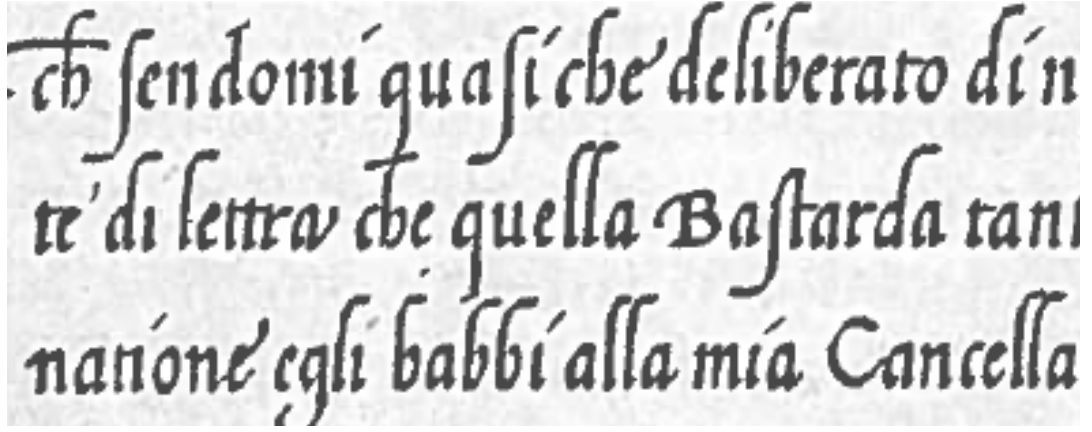 ch̄ ſendomi quaſi che deliberato di n
te di lettra che quella Baſtarda tan
natione egli habbi alla mia Cancella